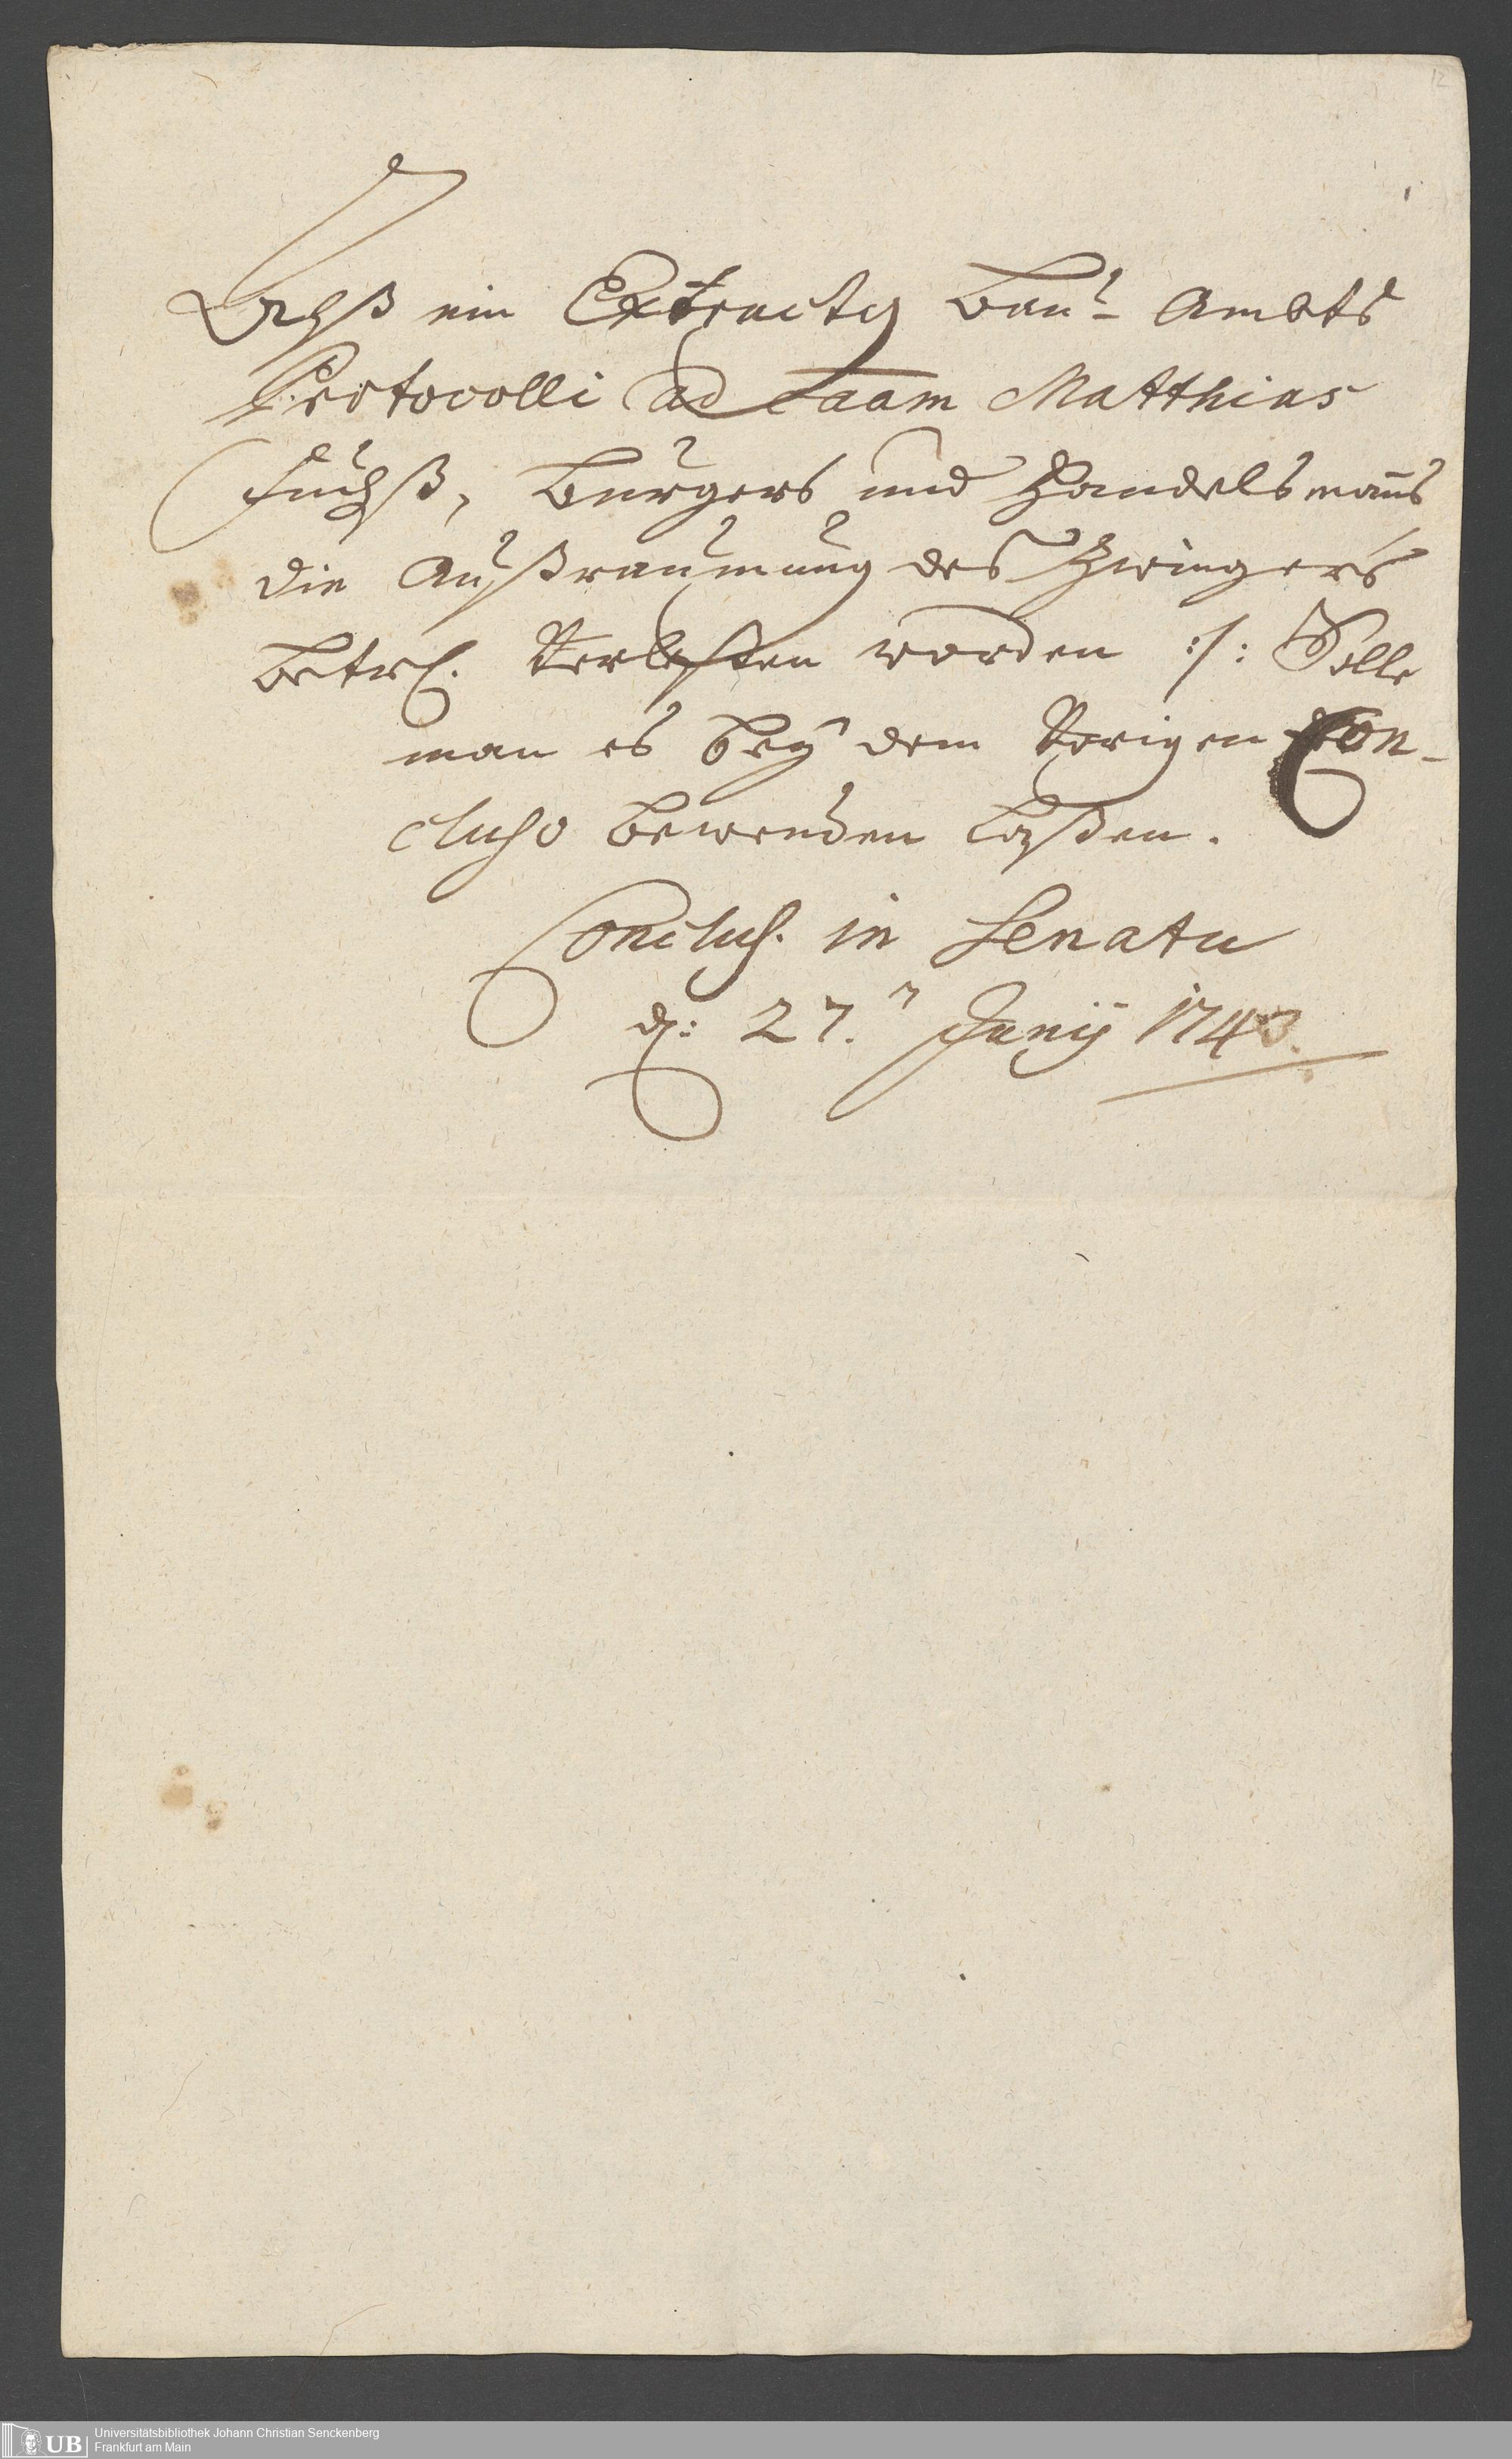 12
Alß ein Extractus Bau-Ambts
Protocolli ad Caam Matthias
Fuchß, Burgers und Handelsmanns
die Außraumung des Zwingers
betrl. Verlesten worden :/: Solle
man es beÿ dem Vorigen Con-
cluso bewenden laßen.
Conclus. in Senatu
d: 27. Junÿ 1743.
UB
Universitätsbibliothek Johann Christian Senckenberg
Frankfurt am Main